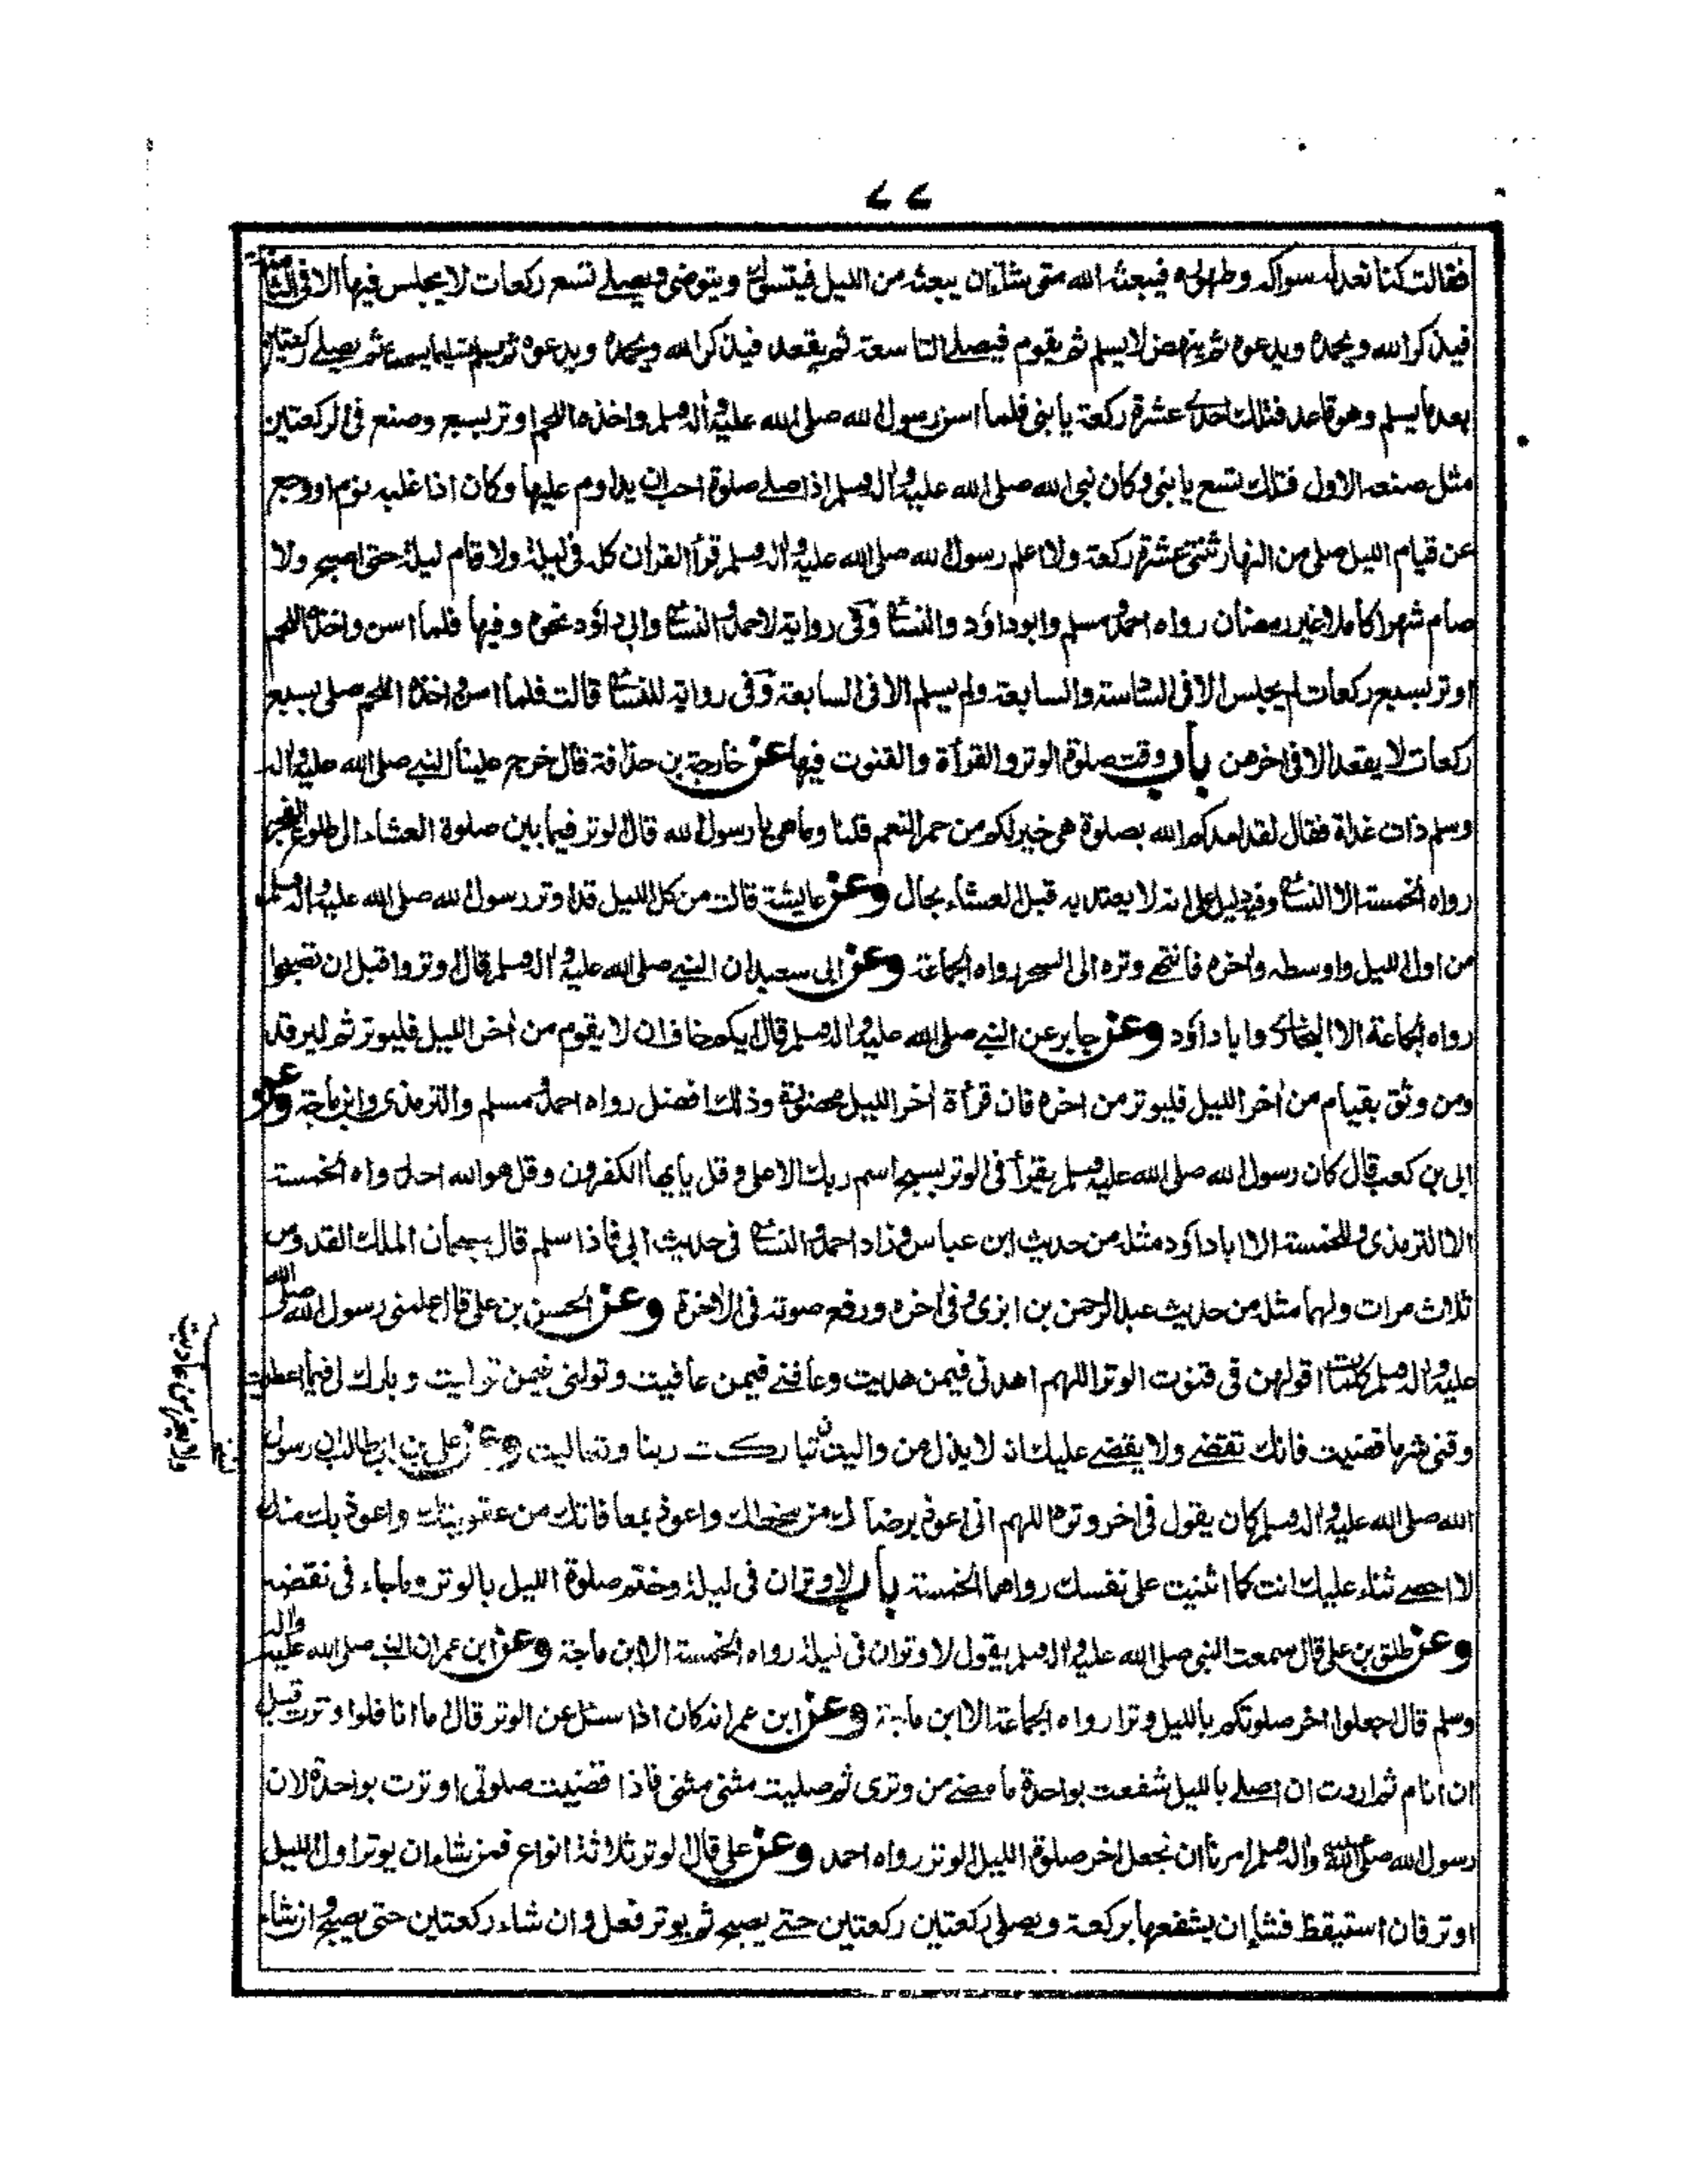 ٧٧
فقالت كنا نعد له سواكه وطهوره فيبعثه الله متى شاء ان يبعثه من الليل فيتسوك ويتوضئ ويصلے تسع ركعات لا يجلس فيها الا فى الثامنة
فيذكر الله ويحمده ويدعوه ثم ينهض لا يسلم ثم يقوم فيصلے التاسعة ثم يقعد فيذكر الله ويحمده ويدعوه ثم يسلم تسليما يسمعنا ثم يصلے ركعتين
بعد ما يسلم وهو قاعد فتلك احدى عشرة ركعة يا بنى فلما اسن رسول الله صلى الله عليه واله وسلم واخذه اللحم اوتر بسبع وصنع فى الركعتين
مثل صنعه الاول فتلك تسع يا بنى وكان نبى الله صلى الله عليه واله وسلم اذا صلے صلوة احب ان يداوم عليها وكان اذا غلبه نوم او وجع
عن قيام الليل صلى من النهار ثنتى عشرة ركعة ولا اعلم رسول الله صلى الله عليه واله وسلم قرأ القران كله فى ليلة ولا قام ليلة حتى اصبح ولا
صام شهرا كاملا غير رمضان رواه احمد ومسلم وابو داؤد والنسائے وفى رواية لاحمد والنسائے وابى داؤد نحوه وفيها فلما اسن واخذه اللحم
اوتر بسبع ركعات لم يجلس الا فى السادسة والسابعة ولم يسلم الا فى السابعة وفى رواية للنسائے قالت فلما اسن واخذه اللحم صلى بسبع
ركعات لا يقعد الا فى اخرهن باب وقت صلوة الوتر والقرأة والقنوت فيها عن خارجة بن حذافة قال خرج علينا النبے صلى الله عليه واله
وسلم ذات غداة فقال لقد امدكم الله بصلوة هى خير لكم من حمر النعم قلنا وما هى يا رسول الله قال الوتر فيما بين صلوة العشاء الى طلوع الفجر
رواه الخمسة الا النسائے وفيه دليل على انه لا يعتد به قبل العشاء بحال وعن عايشة قالت من كل الليل قد اوتر رسول الله صلى الله عليه واله وسلم
من اول الليل واوسطه واخره فانتهے وتره الى السحر رواه الجماعة وعن ابى سعيد ان النبے صلى الله عليه واله وسلم قال اوتروا قبل ان تصبحوا
رواه الجماعة الا البخارى وابا داؤد وعن جابر عن النبے صلى الله عليه واله وسلم قال ايكم خاف ان لا يقوم من اخر الليل فليوتر ثم ليرقد
ومن وثق بقيام من اخر الليل فليوتر من اخره فان قرأة اخر الليل محضورة وذلك افضل رواه احمد ومسلم والترمذى وابن ماجة وعن
ابى بن كعب قال كان رسول الله صلى الله عليه وسلم يقرأ فى الوتر بسبح اسم ربك الاعلى وقل يايها الكفرون وقل هو الله احد رواه الخمسة
الا الترمذى وللخمسة الا ابا داؤد مثله من حديث ابن عباس وزاد احمد والنسائے فى حديث ابى فاذا سلم قال سبحان الملك القدوس
ثلاث مرات ولهما مثله من حديث عبد الرحمن بن ابزى وفى اخره ورفع صوته فى الاخرة وعن الحسن بن على قال علمنى رسول الله صلى الله
عليه واله وسلم كلمات اقولهن فى قنوت الوتر اللهم اهدنى فيمن هديت وعافنے فيمن عافيت وتولنى فيمن توليت وبارك لى فيما اعطيت
وقنى شر ما قضيت فانك تقضے ولا يقضے عليك انه لا يذل من واليت تباركت ربنا وتعاليت وعن على بن ابى طالب ان رسول
الله صلى الله عليه واله وسلم كان يقول فى اخر وتره اللهم انى اعوذ برضاك من سخطك واعوذ بمعافاتك من عقوبتك واعوذ بك منك
لا احصے ثناء عليك انت كما اثنيت على نفسك رواهما الخمسة باب لا وتران فى ليلة وختم صلوة الليل بالوتر وما جاء فى نقضه
وعن طلق بن على قال سمعت النبى صلى الله عليه واله وسلم يقول لا وتران فى ليلة رواه الخمسة الا ابن ماجة وعن ابن عمر ان النبے صلى الله عليه واله
وسلم قال اجعلوا اخر صلوتكم بالليل وترا رواه الجماعة الا ابن ماجة وعن ابن عمر انه كان اذا سئل عن الوتر قال اما انا فلو اوترت قبل
ان انام ثم اردت ان اصلے بالليل شفعت بواحدة ما مضے من وترى ثم صليت مثنى مثنى فاذا قضيت صلوتى اوترت بواحدة لان
رسول الله صلى الله عليه واله وسلم امرنا ان نجعل اخر صلوة الليل الوتر رواه احمد وعن على قال الوتر ثلاثة انواع فمن شاء ان يوتر اول الليل
اوتر فان استيقظ فشاء ان يشفعها بركعة ويصلى ركعتين ركعتين حتے يصبح ثم يوتر فعل وان شاء ركعتين حتى يصبح وان شاء
ولا يعز من عاديت